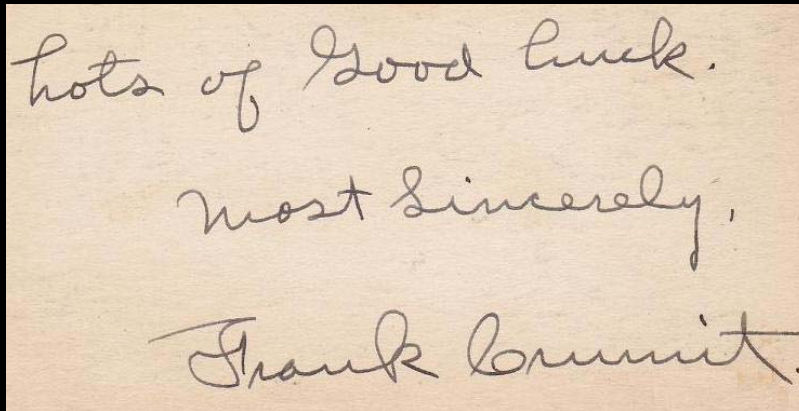 Lots of Good Luck.
Most Sincerely,
Frank Crumit.